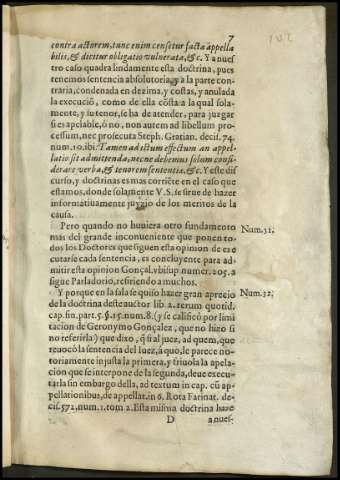 7
contra actorem, tunc enim censetur facta appella
bilis, & dicitur obligatio vulnerata, &c. Y a nues
tro caso quadra lindamente esta doctrina, pues
tenemos sentencia absolutoria, y a la parte con-
traria, condenada en dezima, y costas, y anulada
la execució, como de ella cósta a la qual sola-
mente, y su tenor, se ha de atender, para juzgar
si es apelable, ò no, non autem ad libellum pro-
cessum, nec prosecuta Steph. Gratian. decis. 74.
num. 10. ibi: Tamen ad istum effectum an appel-
latio sit admittenda, nec ne debemus solum consi-
derare verba, & tenorem sententiæ, &c. Y este dis-
curso, y doctrinas es mas corriēte en el caso que
estamos, donde solamente V.S. se sirue de hazer
informatiuamente juyzio de los meritos de la
causa.
Pero quando no huuiera otro fundamento
mas del grande inconueniente que ponen to-
dos los Doctores que siguen esta opinion de exe
cutarse cada sentencia, es concluyente para ad-
mitir esta opinion Gonçal. vbi sup. numer. 205. a
sigue Parladorio, refiriendo a muchos.
Num. 31.
Y porque en la sala se quiso hazer gran aprecio
de la doctrina deste auctor lib. 2. rerum quotid.
cap. fin. part. 5. §. 15. num. 8. (y se calificò por limi
tacion de Geronymo Gonçalez, que no hizo si
no referirla) que dixo, q̃ si al juez, ad quem, que
reuocò la sentencia del Iuez, à quo, le parece no-
toriamente injusta la primera, y friuola la apela-
cion que se interpone de la segunda, deue execu-
tarla sin embargo della, ad textum in cap. cũ ap-
pellationibus, de appellat. in 6. Rota Farinat. de-
cis. 572. num. 1. tom. 2. Esta misma doctrina haze
Num. 32.
D
a nues-